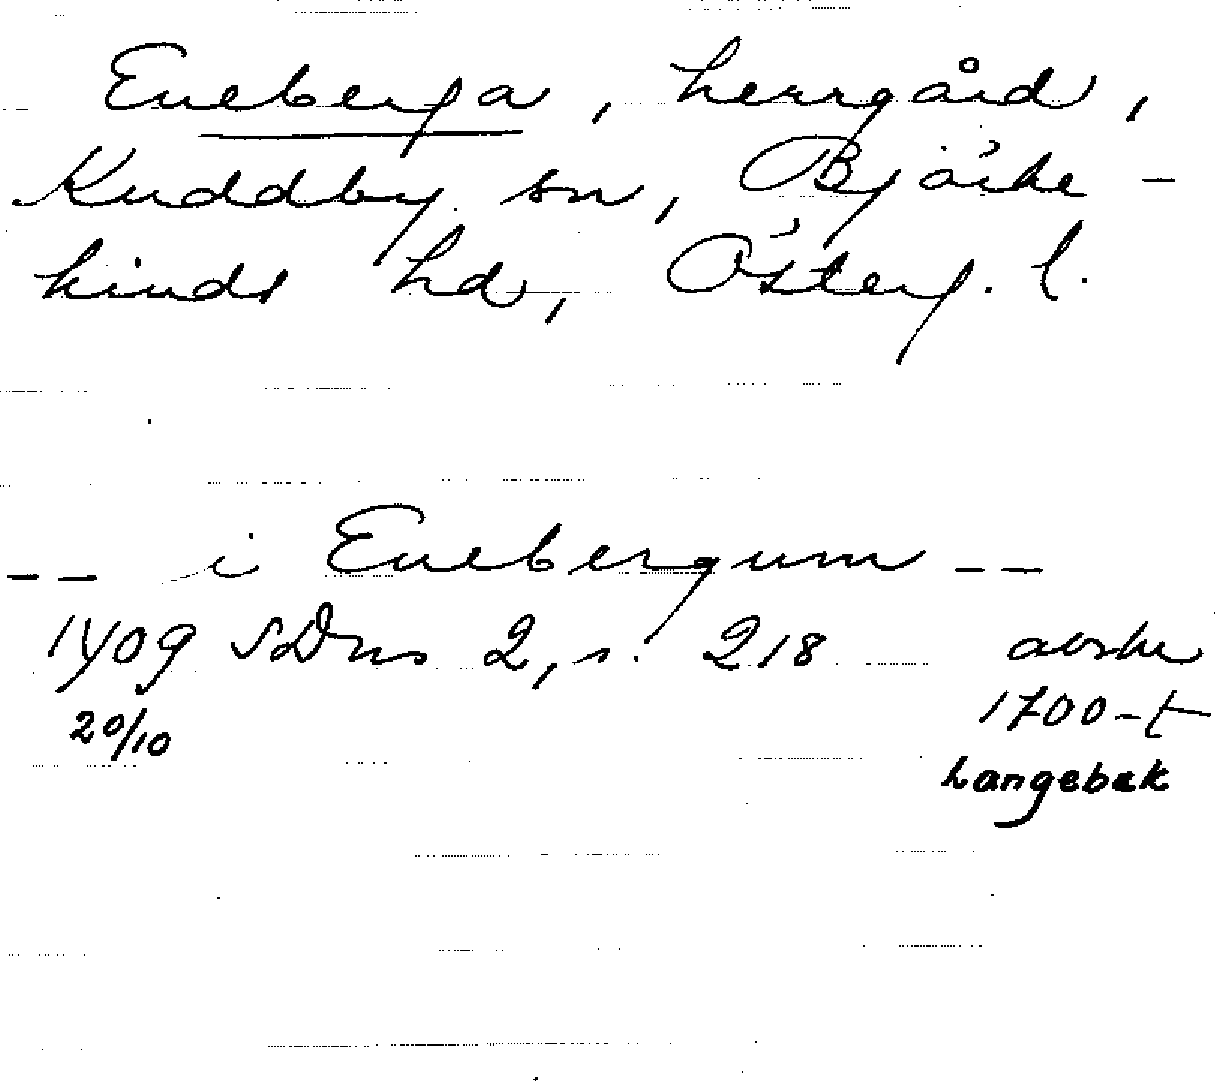 Eneberga, herrgård,
Kuddby sn, Björke-
kinds hd, Österg. l.
-- i Enebergum --
1409 SDns 2, s. 218 avskr
20/10 1700-t
Langebek